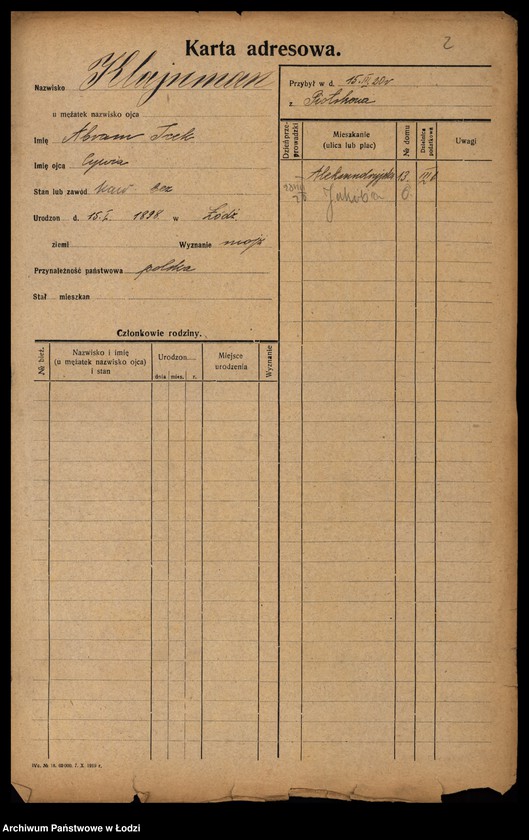 Karta adresowa.
2
Nazwisko Klajnman
u mężatek nazwisko ojca
Imię Abram Icek
Imię ojca Cywia
Stan lub zawód
Urodzon d. 15.I. 1898. w Łódź
ziemi Wyznanie mojż
Przynależność państwowa polska
Stał mieszkan
Przybył w d. 15.
z Piotrkowa
Dzień przeprowadzki
Mieszkanie
(ulica lub plac)
№ domu
Dzielnica podatkowa
Uwagi
Aleksandryjska 13. VII
Jakóba 6.
Członkowie rodziny.
№ bież.
Nazwisko i imię
(u mężatek nazwisko ojca)
i stan
Urodzon
dnia mies. r.
Miejsce
urodzenia
Wyznanie
Archiwum Państwowe w Łodzi